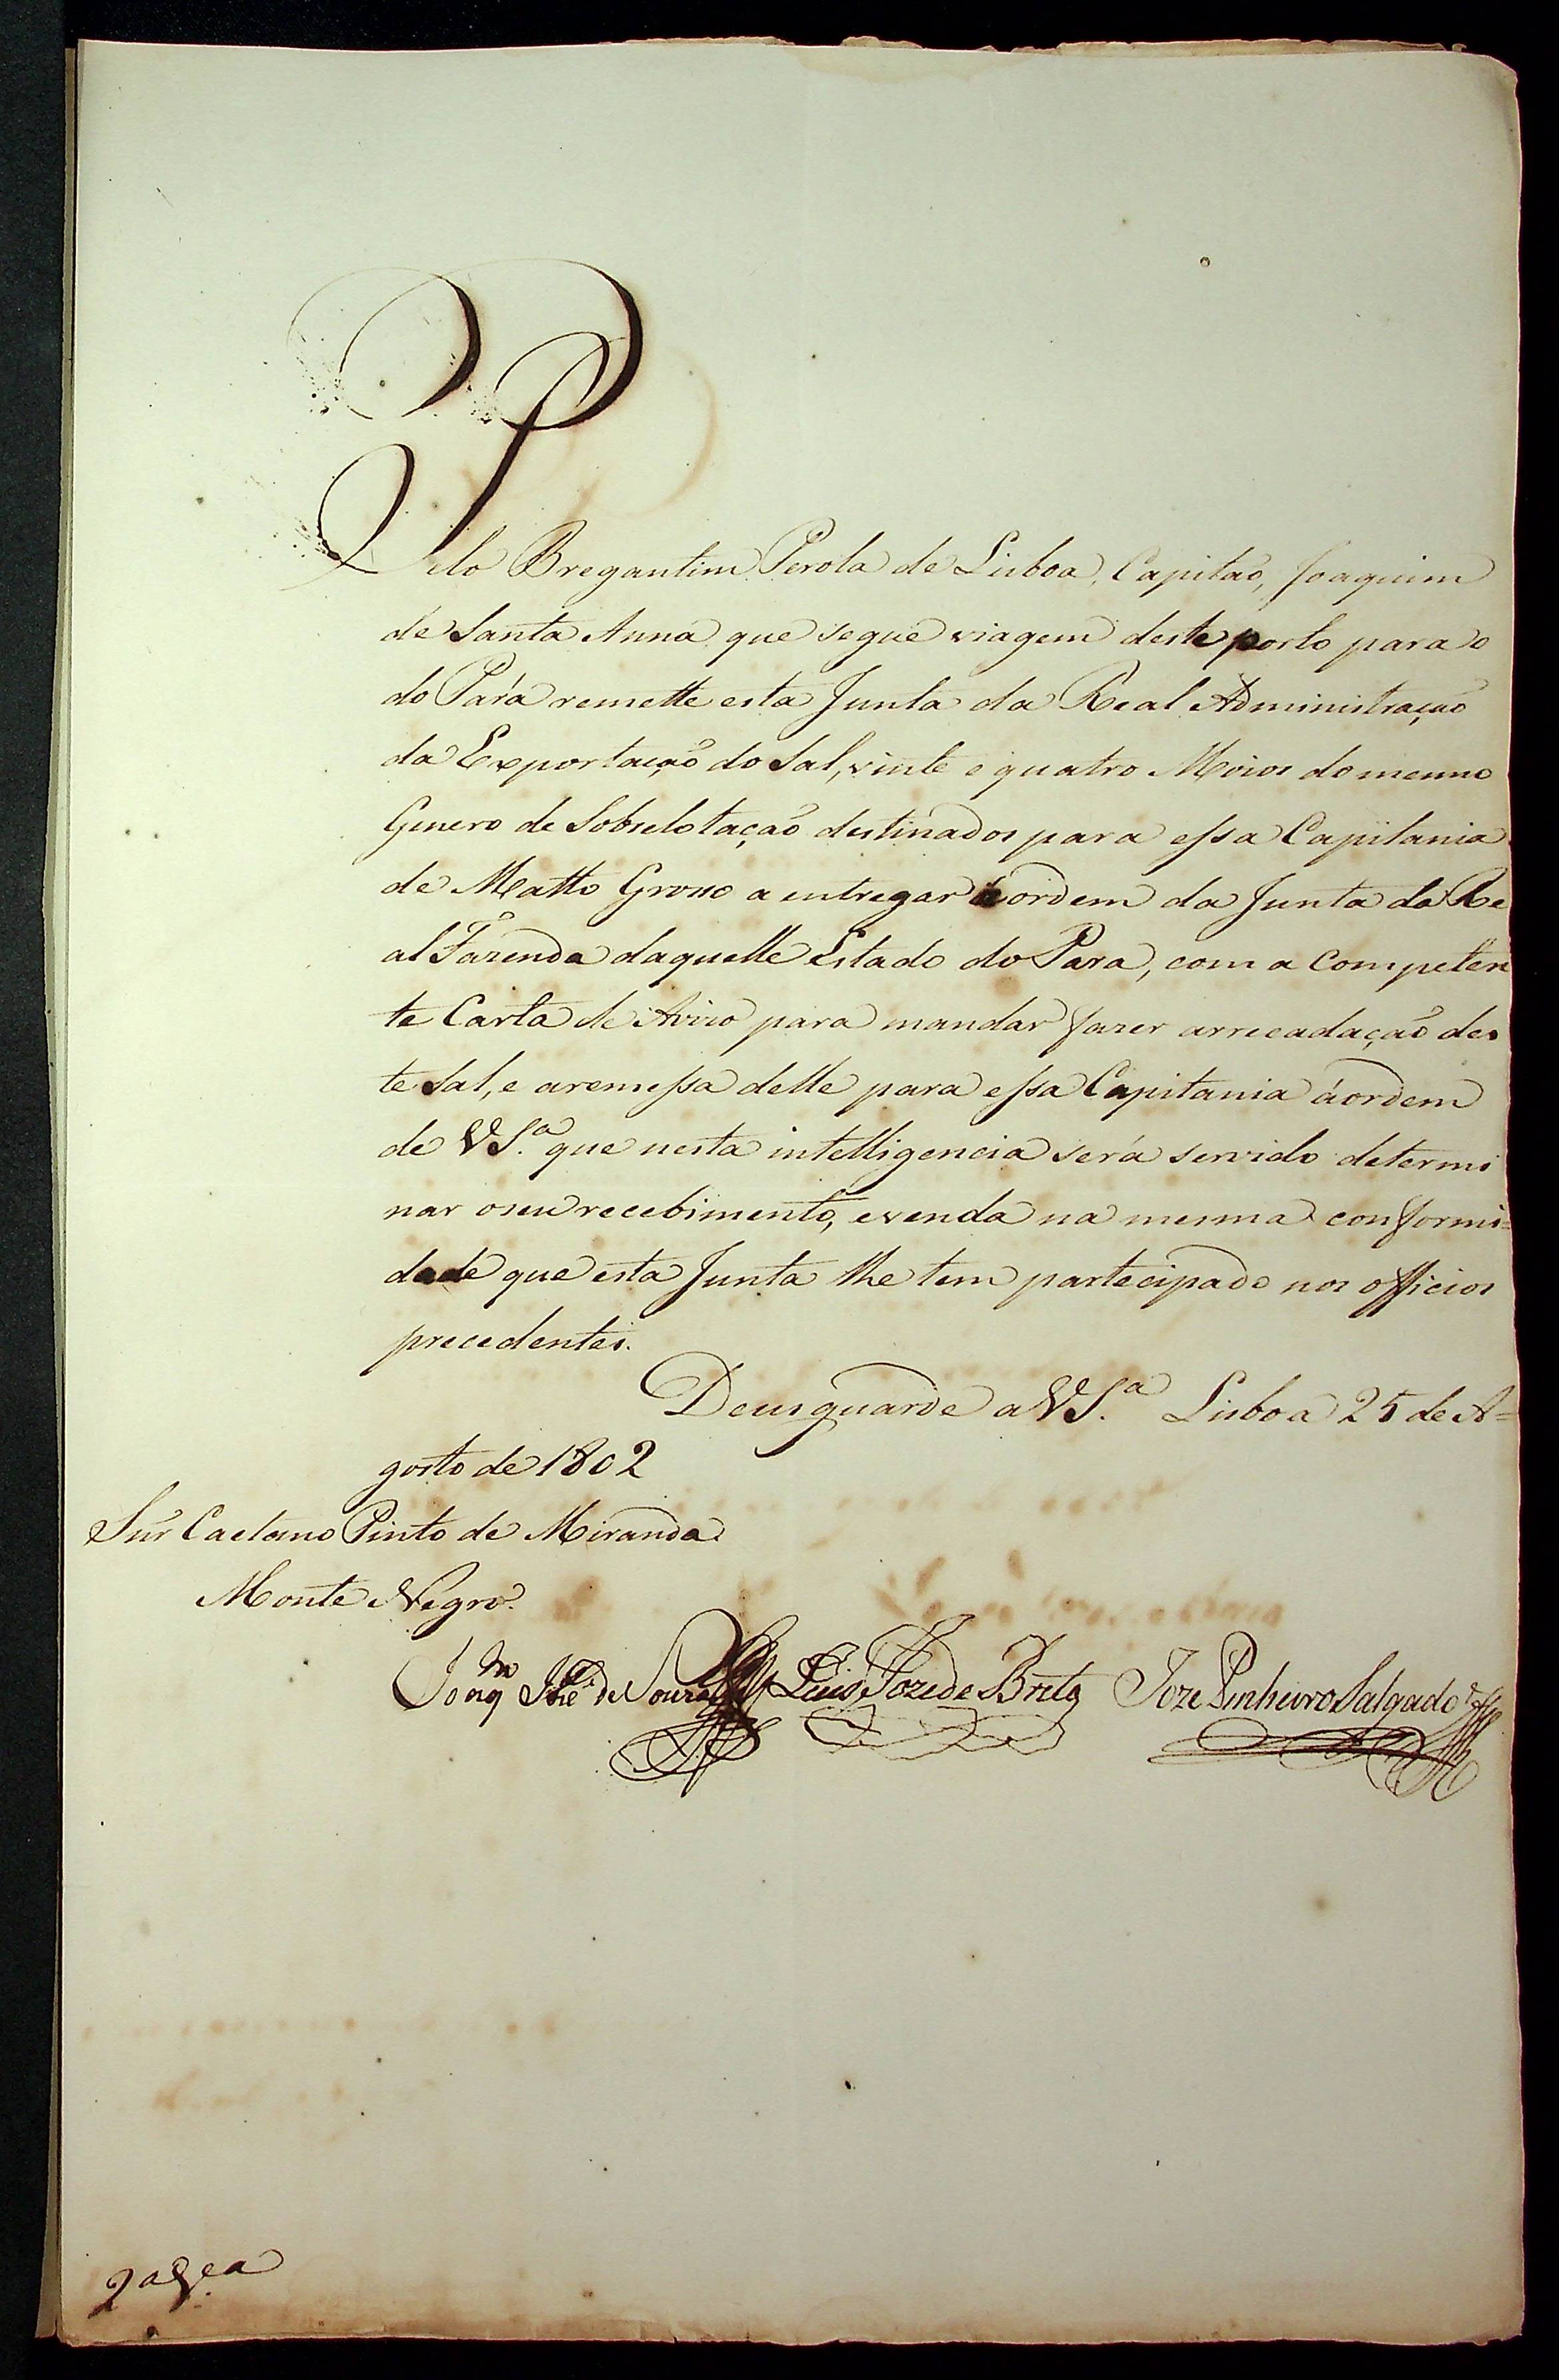 Pelo Bregantim Perola de Lisboa, Capitaõ, Joaquim
de Santa Anna que segue viagem deste porto para o
do Pará remette esta Junta da Real Administraçaõ
da Exportaçaõ do Sal, vinte e quatro Moios do mesmo
Genero de Sobrelotaçaõ destinados para essa Capitania
de Matto Grosso a entregar á ordem da Junta da Re
al Fazenda daquelle Estado do Para, com a Competen
te Carta de Avizo para mandar fazer arrecadaçaõ des
te Sal, e aremessa delle para essa Capitania áordem
de VS.ª que nesta intelligencia será servido determi
nar oseu recebimento, evenda na mesma conformi=
dade que esta Junta lhe tem partecipado nos officios
precedentes.
Deus guarde a VS.ª Lisboa 25 de A=
gosto de 1802
Snr̃ Caetano Pinto de Miranda
Monte Negro.
Joaqm Jze de Souza Luis Joze de Brito Joze Pinheiro Salgado
2ª Vª